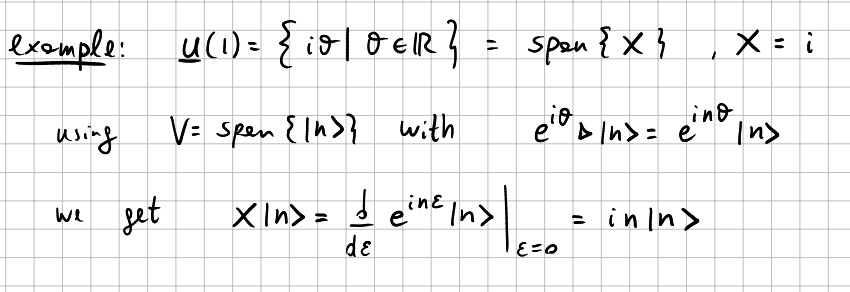 example: u(1) = { iθ | θ ∈ ℝ } = span { X } , X = i
using V = span {|n>} with e^{iθ} ▷ |n> = e^{inθ} |n>
we get X|n> = d/dε e^{inε} |n> |_{ε=0} = in|n>